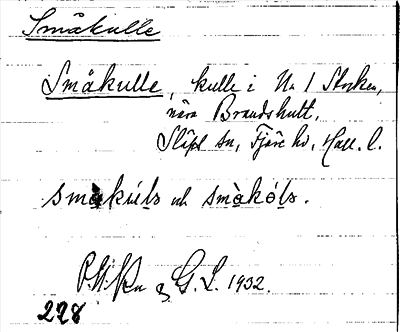 Småkulle
Småkulle, kulle i N:o 1 Stocken,
nära Brandshult,
Släps sn, Fjäre hd, Hall. l.
småkúls och småkóls.
G. L. 1932.
228